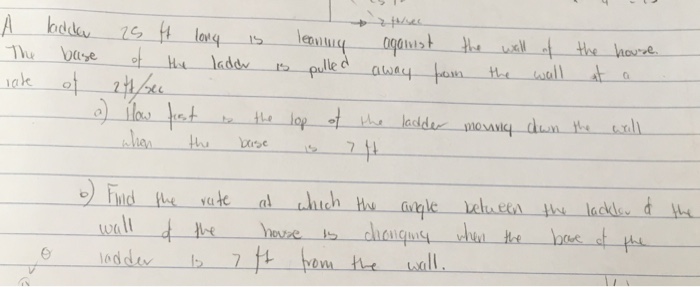 2 ft/sec
A ladder 25 ft long is leaning against the wall of the house.
The base of the ladder is pulled away from the wall at a
rate of 2ft/sec
a) How fast is the top of the ladder moving down the wall
when the base is 7 ft
b) Find the rate at which the angle between the ladder & the
wall of the house is changing when the base of the
ladder is 7 ft from the wall.
θ